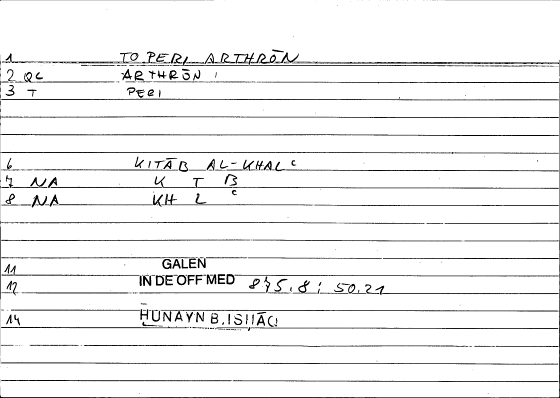 1 TO PERI ARTHRŌN
2 QC ARTHRŌN
3 T PERI
6 KITĀB AL-KHALᶜ
7 NA K T B
8 NA KH L ᶜ
11 GALEN
12 IN DE OFF MED 875.8 : 50.21
14 ḤUNAYN B. ISḤĀQ